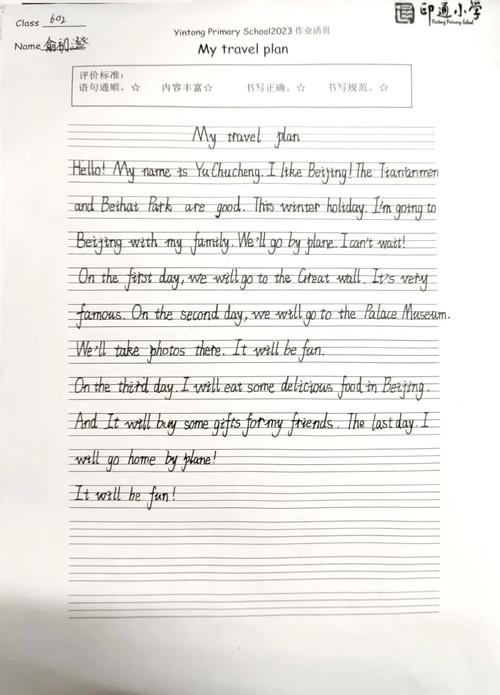 Class 602
印通小学
Yintong Primary School
Yintong Primary School2023 作业活页
Name 俞初澄
My travel plan
评价标准:
语句通顺。☆ 内容丰富☆ 书写正确。☆ 书写规范。☆
My travel plan
Hello! My name is Yu Chucheng. I like Beijing! The Tian'anmen
and Beihai Park are good. This winter holiday. I'm going to
Beijing with my family. We'll go by plane. I can't wait!
On the first day, we will go to the Great wall. It's very
famous. On the second day, we will go to the Palace Museum.
We'll take photos there. It will be fun.
On the third day. I will eat some delicious food in Beijing.
And It will buy some gifts for my friends. The last day. I
will go home by plane!
It will be fun!